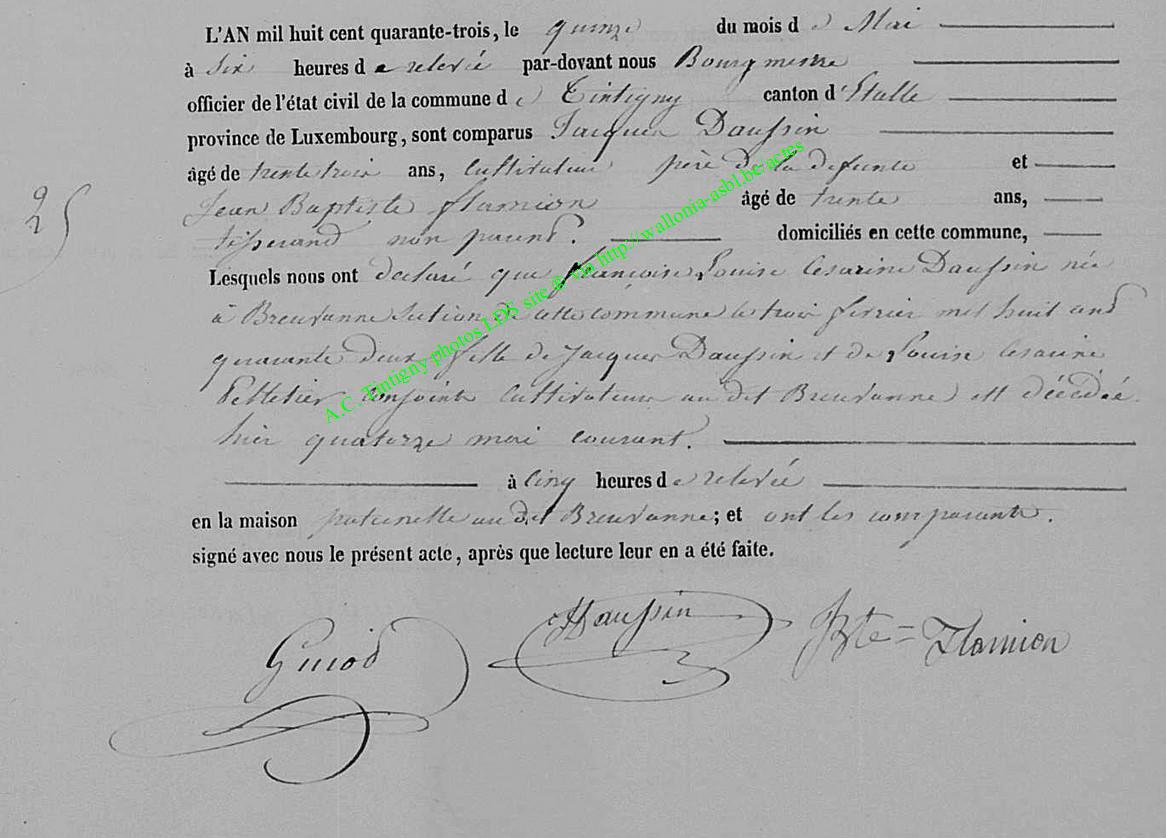 L'AN mil huit cent quarante-trois, le quinze du mois de Mai
à Six heures de relevée par-devant nous Bourgmestre
officier de l'état civil de la commune de Tintigny canton d'Etalle
province de Luxembourg, sont comparus Jacques Daussin
âgé de trente trois ans, Cultivateur père de la defunte et
25
Jean Baptiste flamion âgé de trente ans,
tisserand non parent. domiciliés en cette commune,
Lesquels nous ont declaré que françoise Louise Cesarine Daussin née
à Breuvanne Section de cette commune le trois fevrier mil huit cent
quarante deux fille de Jacques Daussin et de Louise Cesarine
Pelletier conjoints Cultivateurs au dit Breuvanne est décédée
hier quatorze mai courant.
à Cinq heures de relevée
en la maison paternelle au dit Breuvanne; et ont les comparants.
signé avec nous le présent acte, après que lecture leur en a été faite.
Guiod Daussin Bte = Flamion
A.C. Tintigny photos LDS site & via http://wallonia-asbl.be-actes